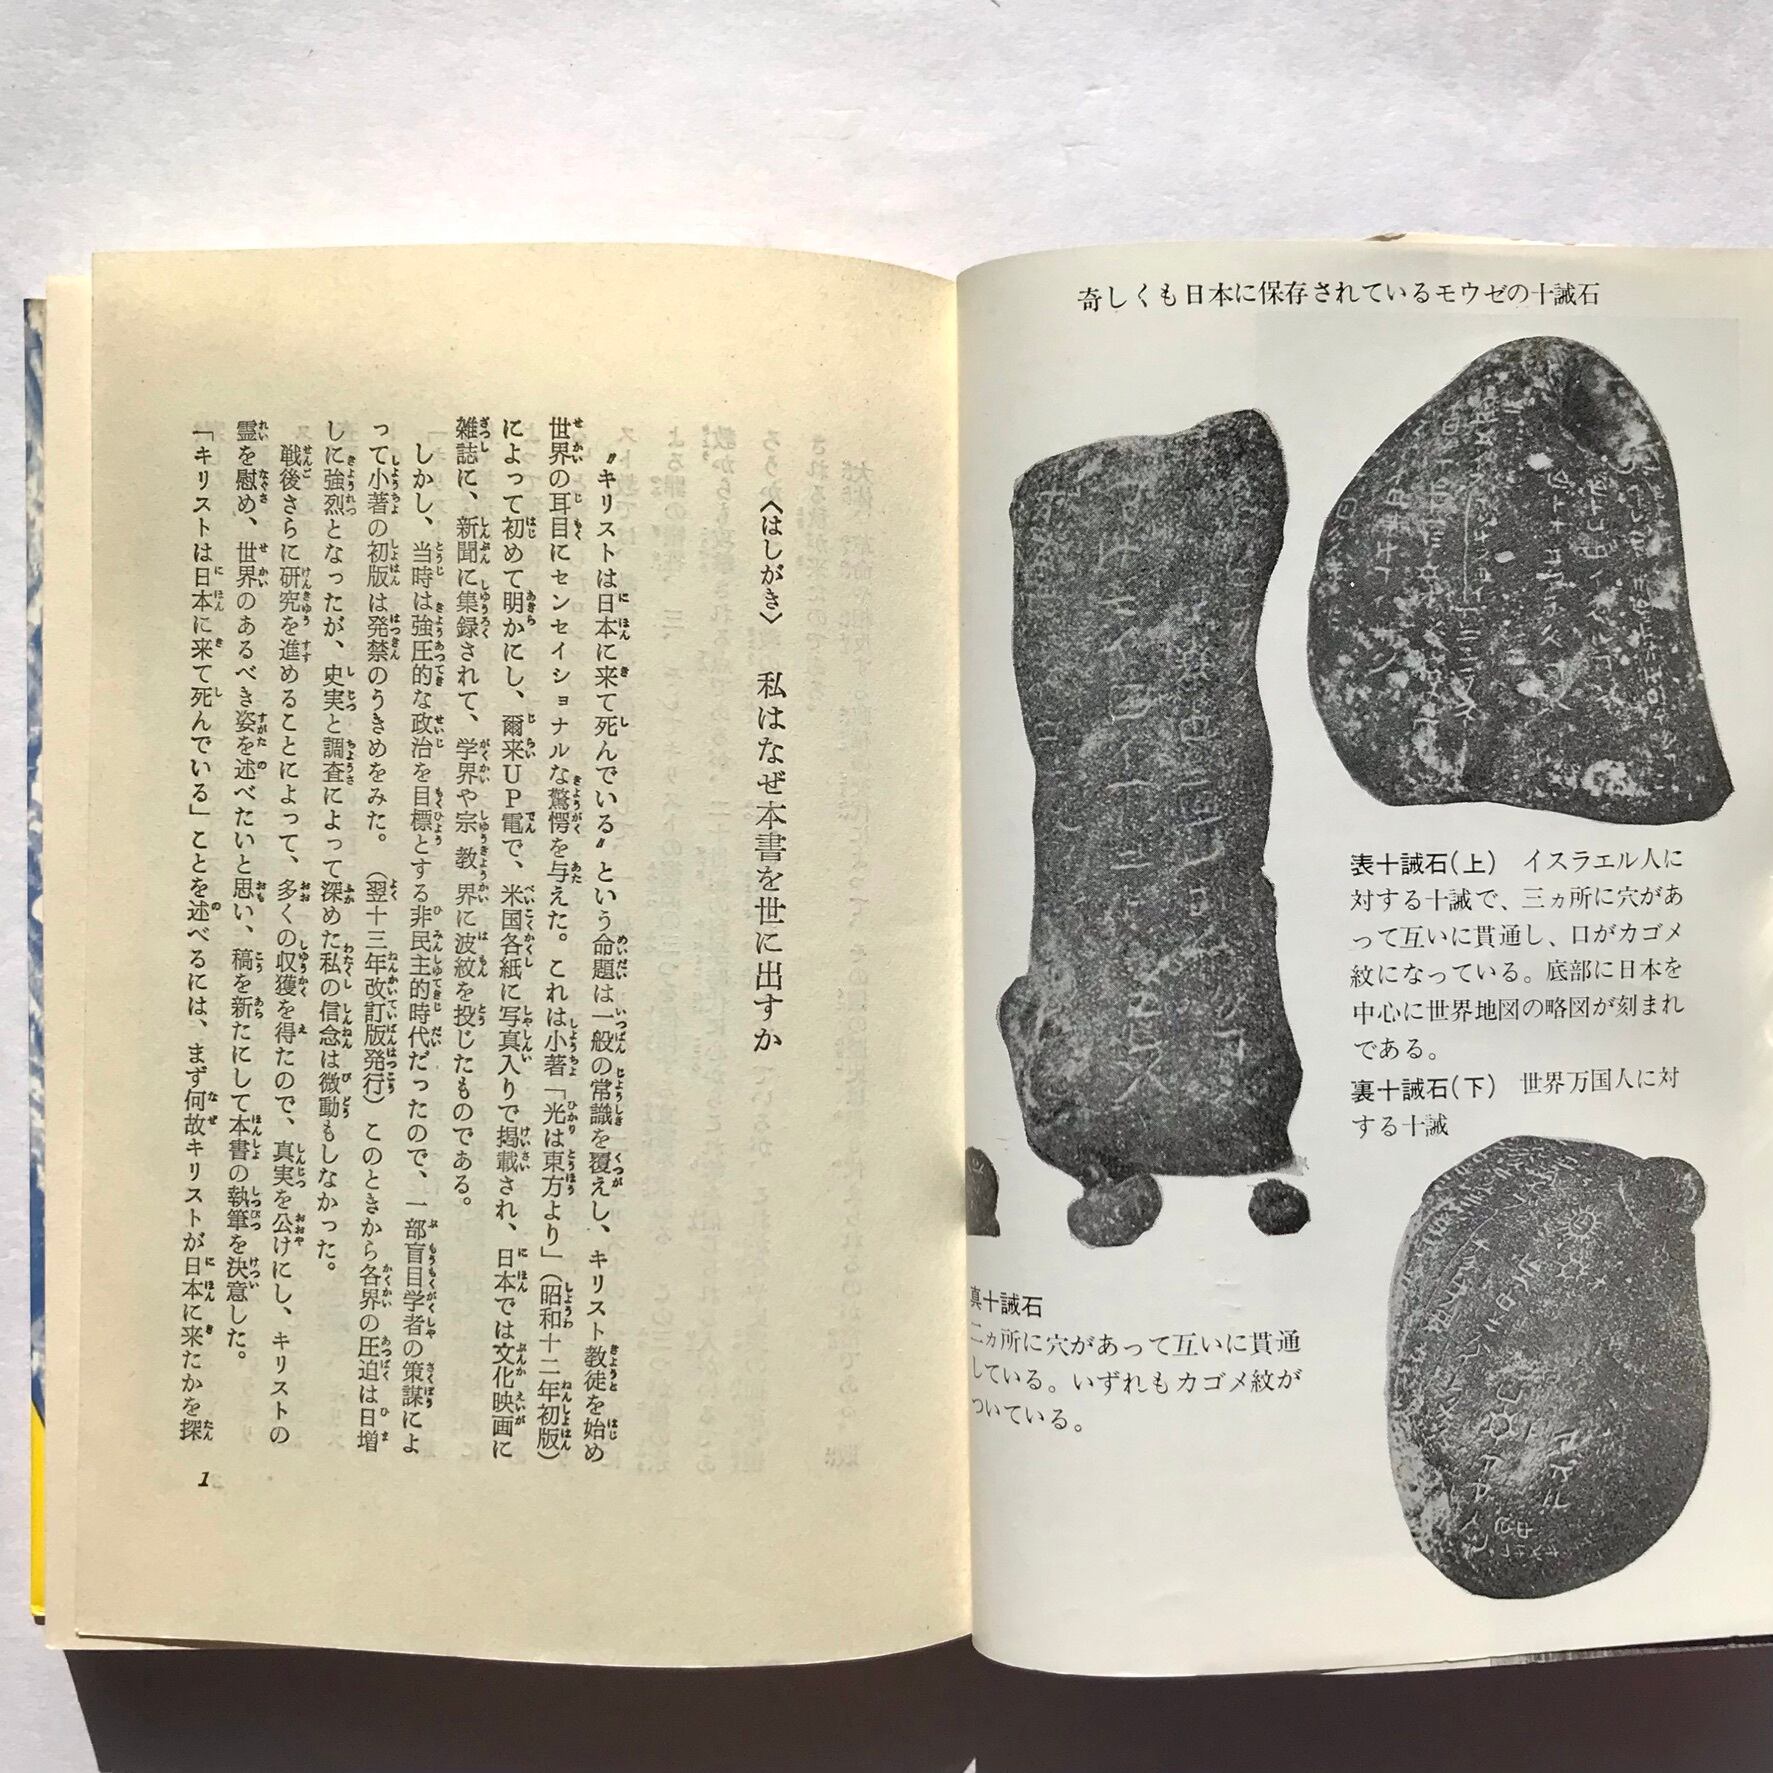 奇しくも日本に保存されているモウゼの十誡石
表十誡石(上)　イスラエル人に
対する十誡で、三ヵ所に穴があ
って互いに貫通し、口がカゴメ
紋になっている。底部に日本を
中心に世界地図の略図が刻まれ
てある。
裏十誡石(下)　世界万国人に対
する十誡
真十誡石
二ヵ所に穴があって互いに貫通
している。いずれもカゴメ紋が
ついている。
〈はしがき〉　私はなぜ本書を世に出すか
〝キリストは日本に来て死んでいる〟という命題は一般の常識を覆えし、キリスト教徒を始め
世界の耳目にセンセイショナルな驚愕を与えた。これは小著「光は東方より」（昭和十二年初版）
によって初めて明かにし、爾来ＵＰ電で、米国各紙に写真入りで掲載され、日本では文化映画に
雑誌に、新聞に集録されて、学界や宗教界に波紋を投じたものである。
しかし、当時は強圧的な政治を目標とする非民主的時代だったので、一部盲目学者の策謀によ
って小著の初版は発禁のうきめをみた。（翌十三年改訂版発行）このときから各界の圧迫は日増
しに強烈となったが、史実と調査によって深めた私の信念は微動もしなかった。
戦後さらに研究を進めることによって、多くの収獲を得たので、真実を公けにし、キリストの
霊を慰め、世界のあるべき姿を述べたいと思い、稿を新たにして本書の執筆を決意した。
「キリストは日本に来て死んでいる」ことを述べるには、まず何故キリストが日本に来たかを探
1